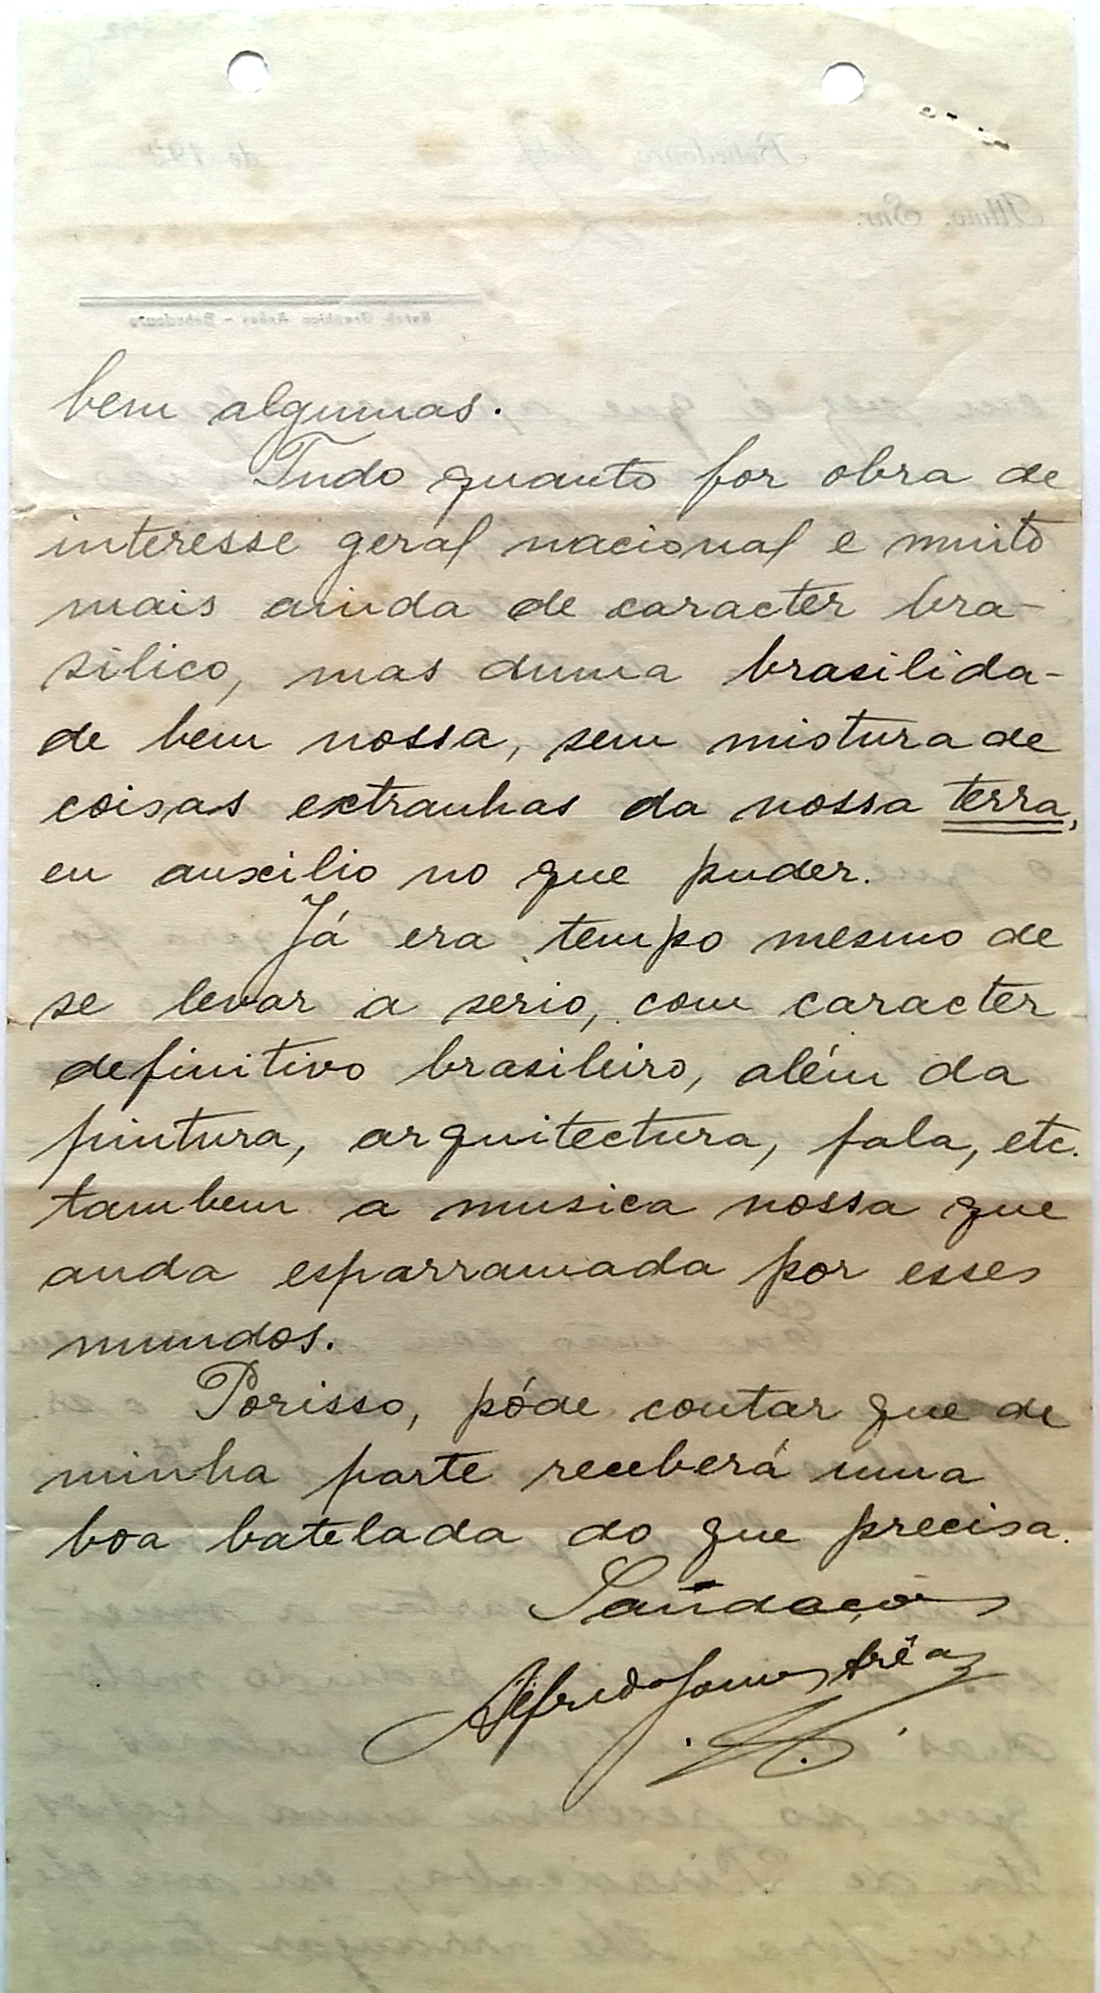 bem algumas.
Tudo quanto for obra de
interesse geral nacional e muito
mais ainda de caracter bra-
silico, mas duma brasilida-
de bem nossa, sem mistura de
coisas extranhas da nossa terra,
eu auxilio no que puder.
Já era tempo mesmo de
se levar a serio, com caracter
definitivo brasileiro, além da
pintura, arquitectura, fala, etc.
tambem a musica nossa que
anda esparramada por esses
mundos.
Porisso, póde contar que de
minha parte receberá uma
boa batelada do que precisa.
Saudações
Alfredo Gomes Arêas